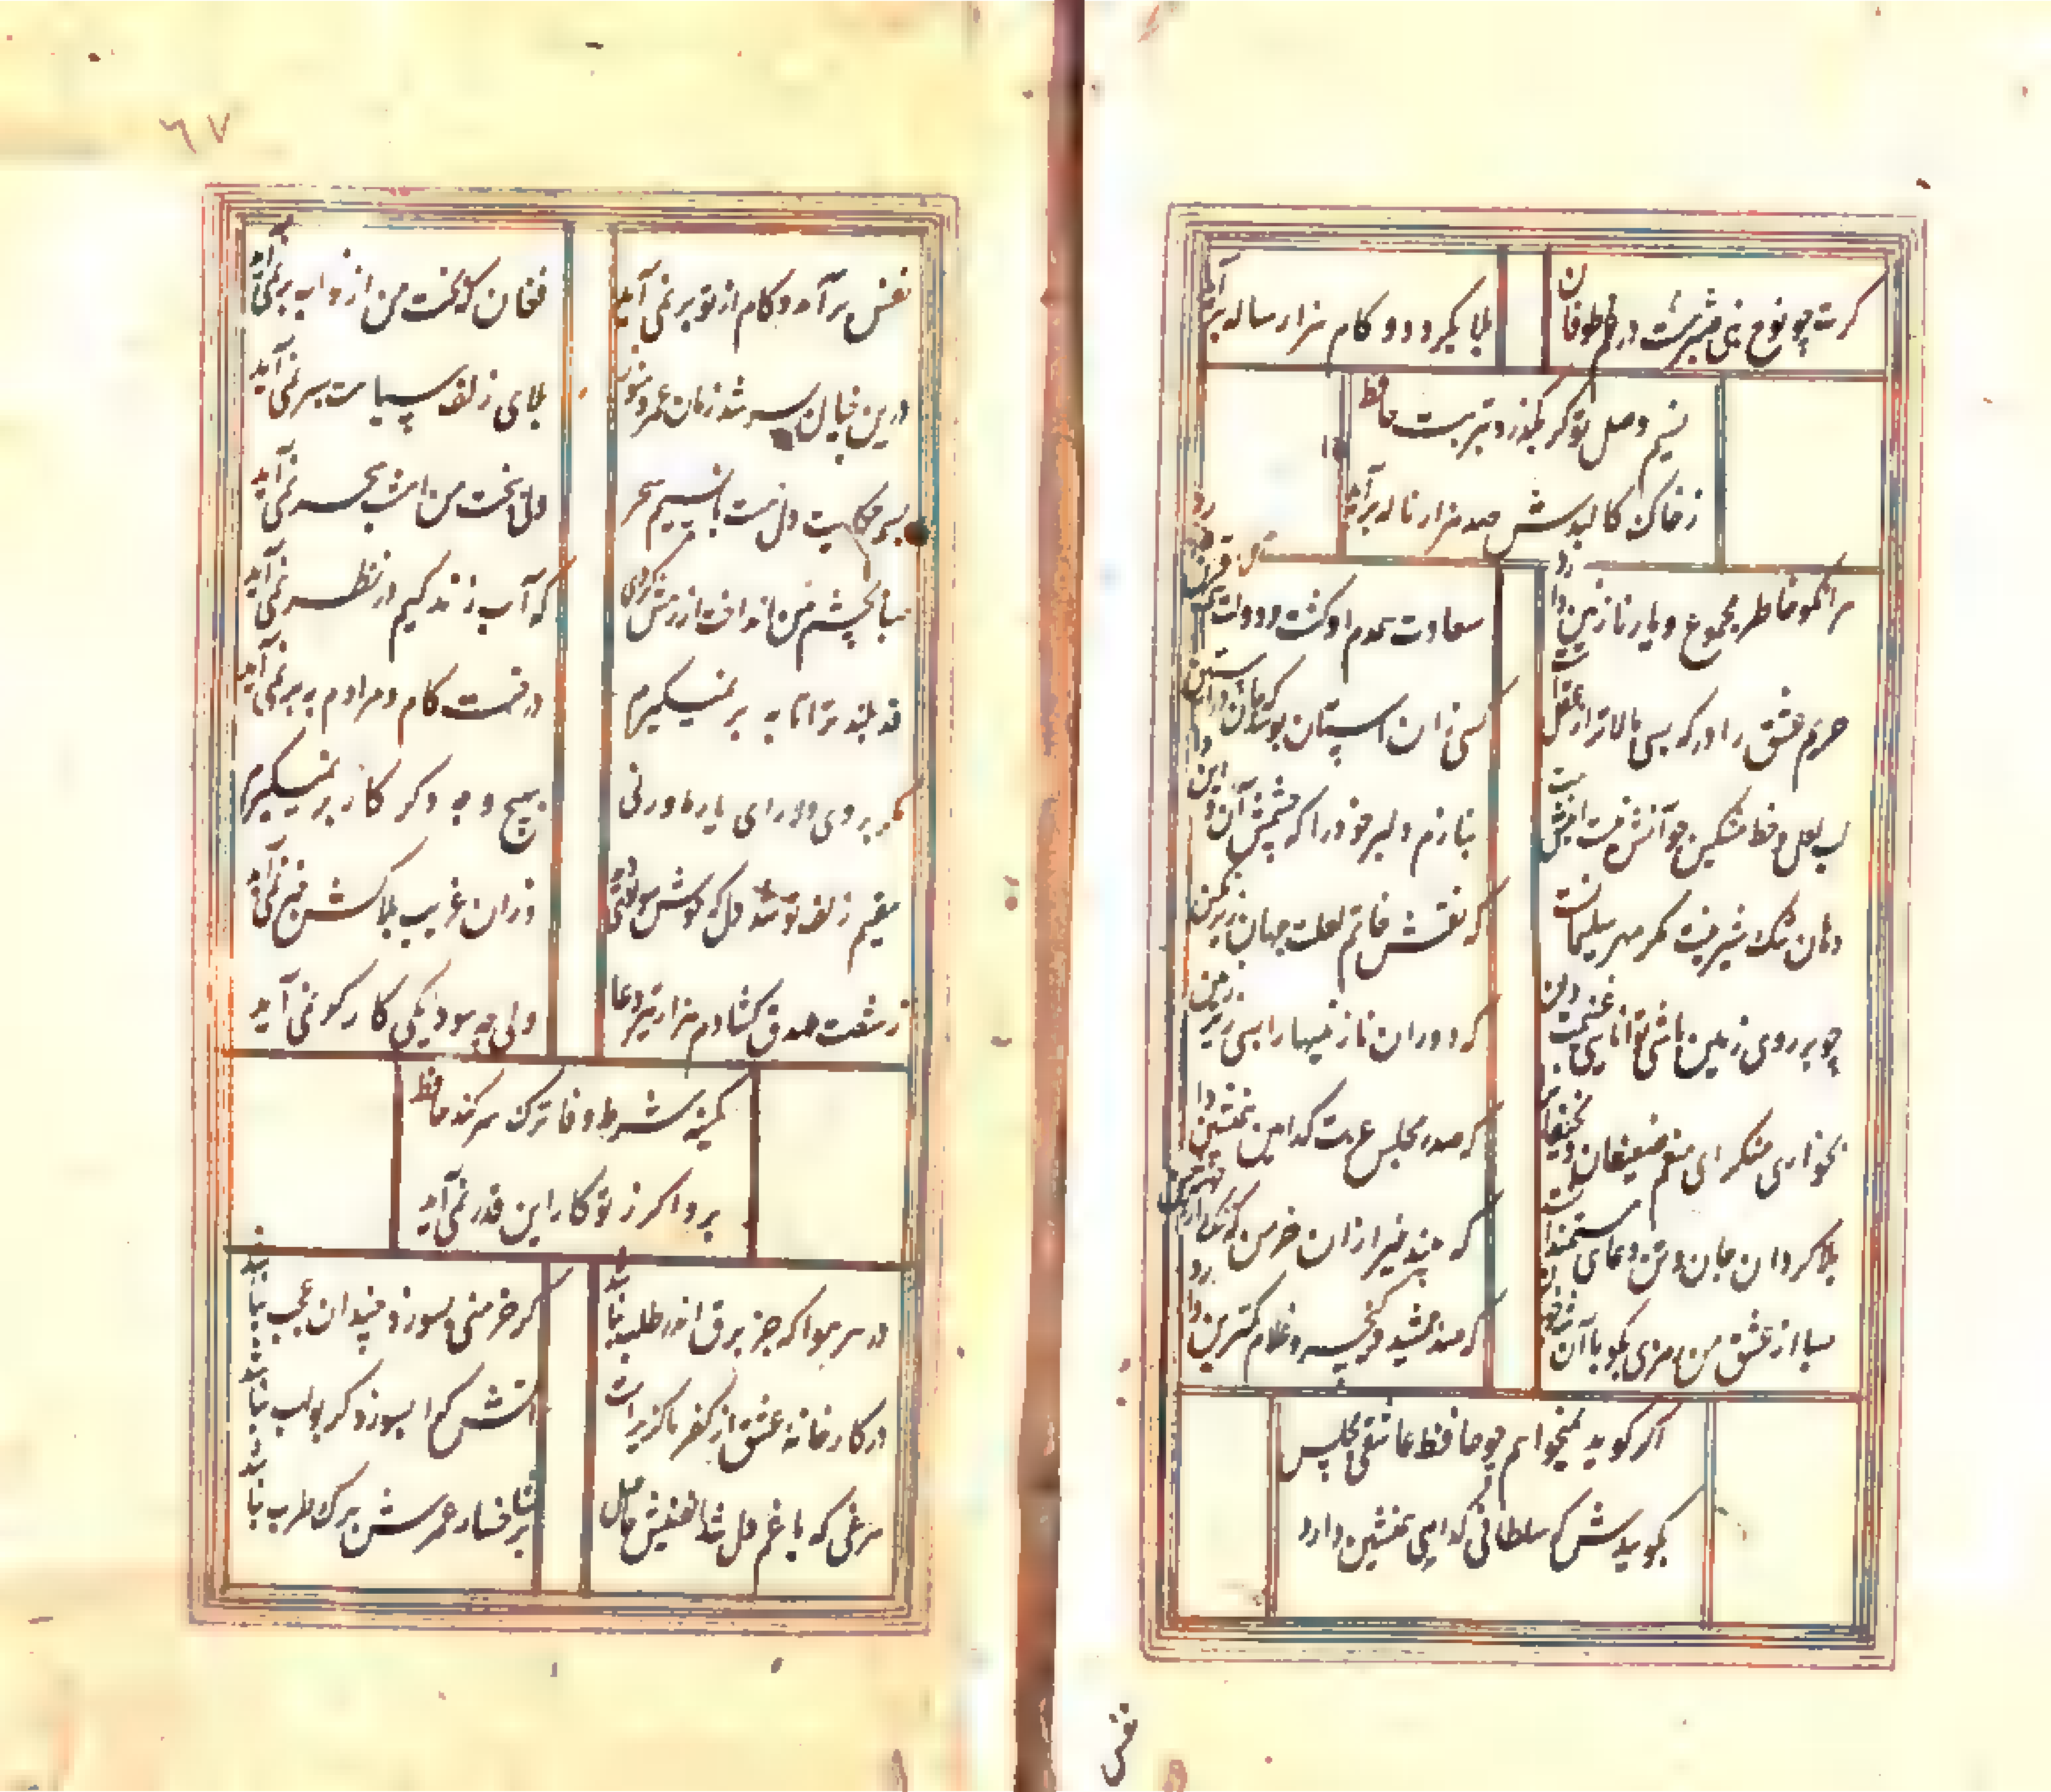 کرت چو نوح نبی صبر هست در غم طوفان
بلا بگردد و کام هزار ساله برآید
نسیم وصل تو گر بگذرد بتربت حافظ
ز خاک کالبدش صد هزار ناله برآید
هر آنکو خاطر مجموع و یار نازنین دارد
سعادت همدم او کشت و دولت همقرین دارد
حریم عشق را درکه بسی بالاتر از عقلست
کسی آن آستان بوسد که جان در آستین دارد
لب لعل و خط مشکین چو آنش هست اینش هست
بنازم دلبر خود را که چشمش آن و این دارد
دهان تنک شیرینت مگر مهر سلیمانست
که نقش خاتم لعلت جهان زیر نکین دارد
چو بر روی زمین باشی توانایی غنیمت دان
که دوران ناتوانیها بسی زیر زمین دارد
بخواری منکر ای منعم ضعیفان و نحیفان را
که صدر مجلس عزت کدای ره نشین دارد
بلا کردان جان و تن دعای مستمندانست
که بیند خیر ازان خرمن که ننک از خوشه چین دارد
صبا از عشق من رمزی بگو با آن شه خوبان
که صد جمشید و کیخسرو غلام کمترین دارد
اگر کوید نمیخواهم چو حافظ عاشقی مجلس
بگوییدش که سلطانی کدایی همنشین دارد
نفس
٦٧
نفس برآمد و کام از تو بر نمی آید
فغان که بخت من از خواب بر نمی آید
درین خیال بسر شد زمان عمر و هنوز
بلای زلف سیاهت بسر نمی آید
بسی حکایت دل هست با نسیم سحر
ولی بخت من امشب سحر نمی آید
صبا بچشم من انداخت از درش کردی
که آب زندگیم در نظر نمی آید
قد بلند ترا تا به بر نمیگیرم
درخت کام و مرادم به بر نمی آید
مگر بروی دلارای یار ما ورنی
بهیچ وجه دگر کار بر نمیگیرم
مقیم زلف تو شد دل که خوش سوادی دید
وزان غریب بلاکش خبر نمی آید
ز شست صدق کشادم هزار تیر دعا
ولی چه سود یکی کارگر نمی آید
کمینه شرط وفا ترک سر کند حافظ
برو اگر ز تو کار این قدر نمی آید
در هر هوا که جز برق اندر طلب نباشد
گر خرمنی بسوزد چندان عجب نباشد
در کارخانه عشق از کفر ناگزیر است
آتش کرا بسوزد کر بولهب نباشد
مرغی که با غم دل شد الفتیش حاصل
بر شاخسار عمرش برگ طرب نباشد